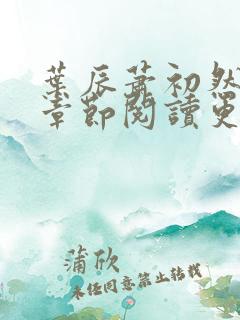 葉辰蕭初然
章節閱讀更
蒲欣
未任同意禁止转载